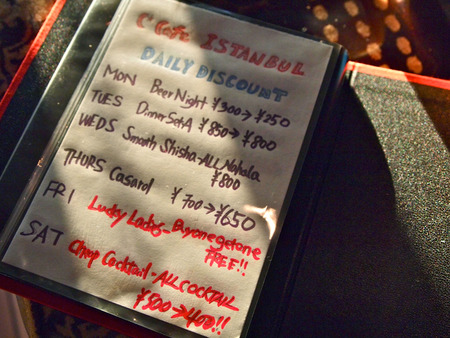 C Cafe ISTANBUL
DAILY DISCOUNT
MON Beer Night ¥300→¥250
TUES Dinner Set A ¥850→¥800
WEDS Smooth Shisha-ALL Nahala
¥800
THURS Casard ¥700→¥650
FRI Lucky Ladys-Buy one get one
FREE!!
SAT Chop Cocktail-ALL COCKTAIL
¥500→400!!